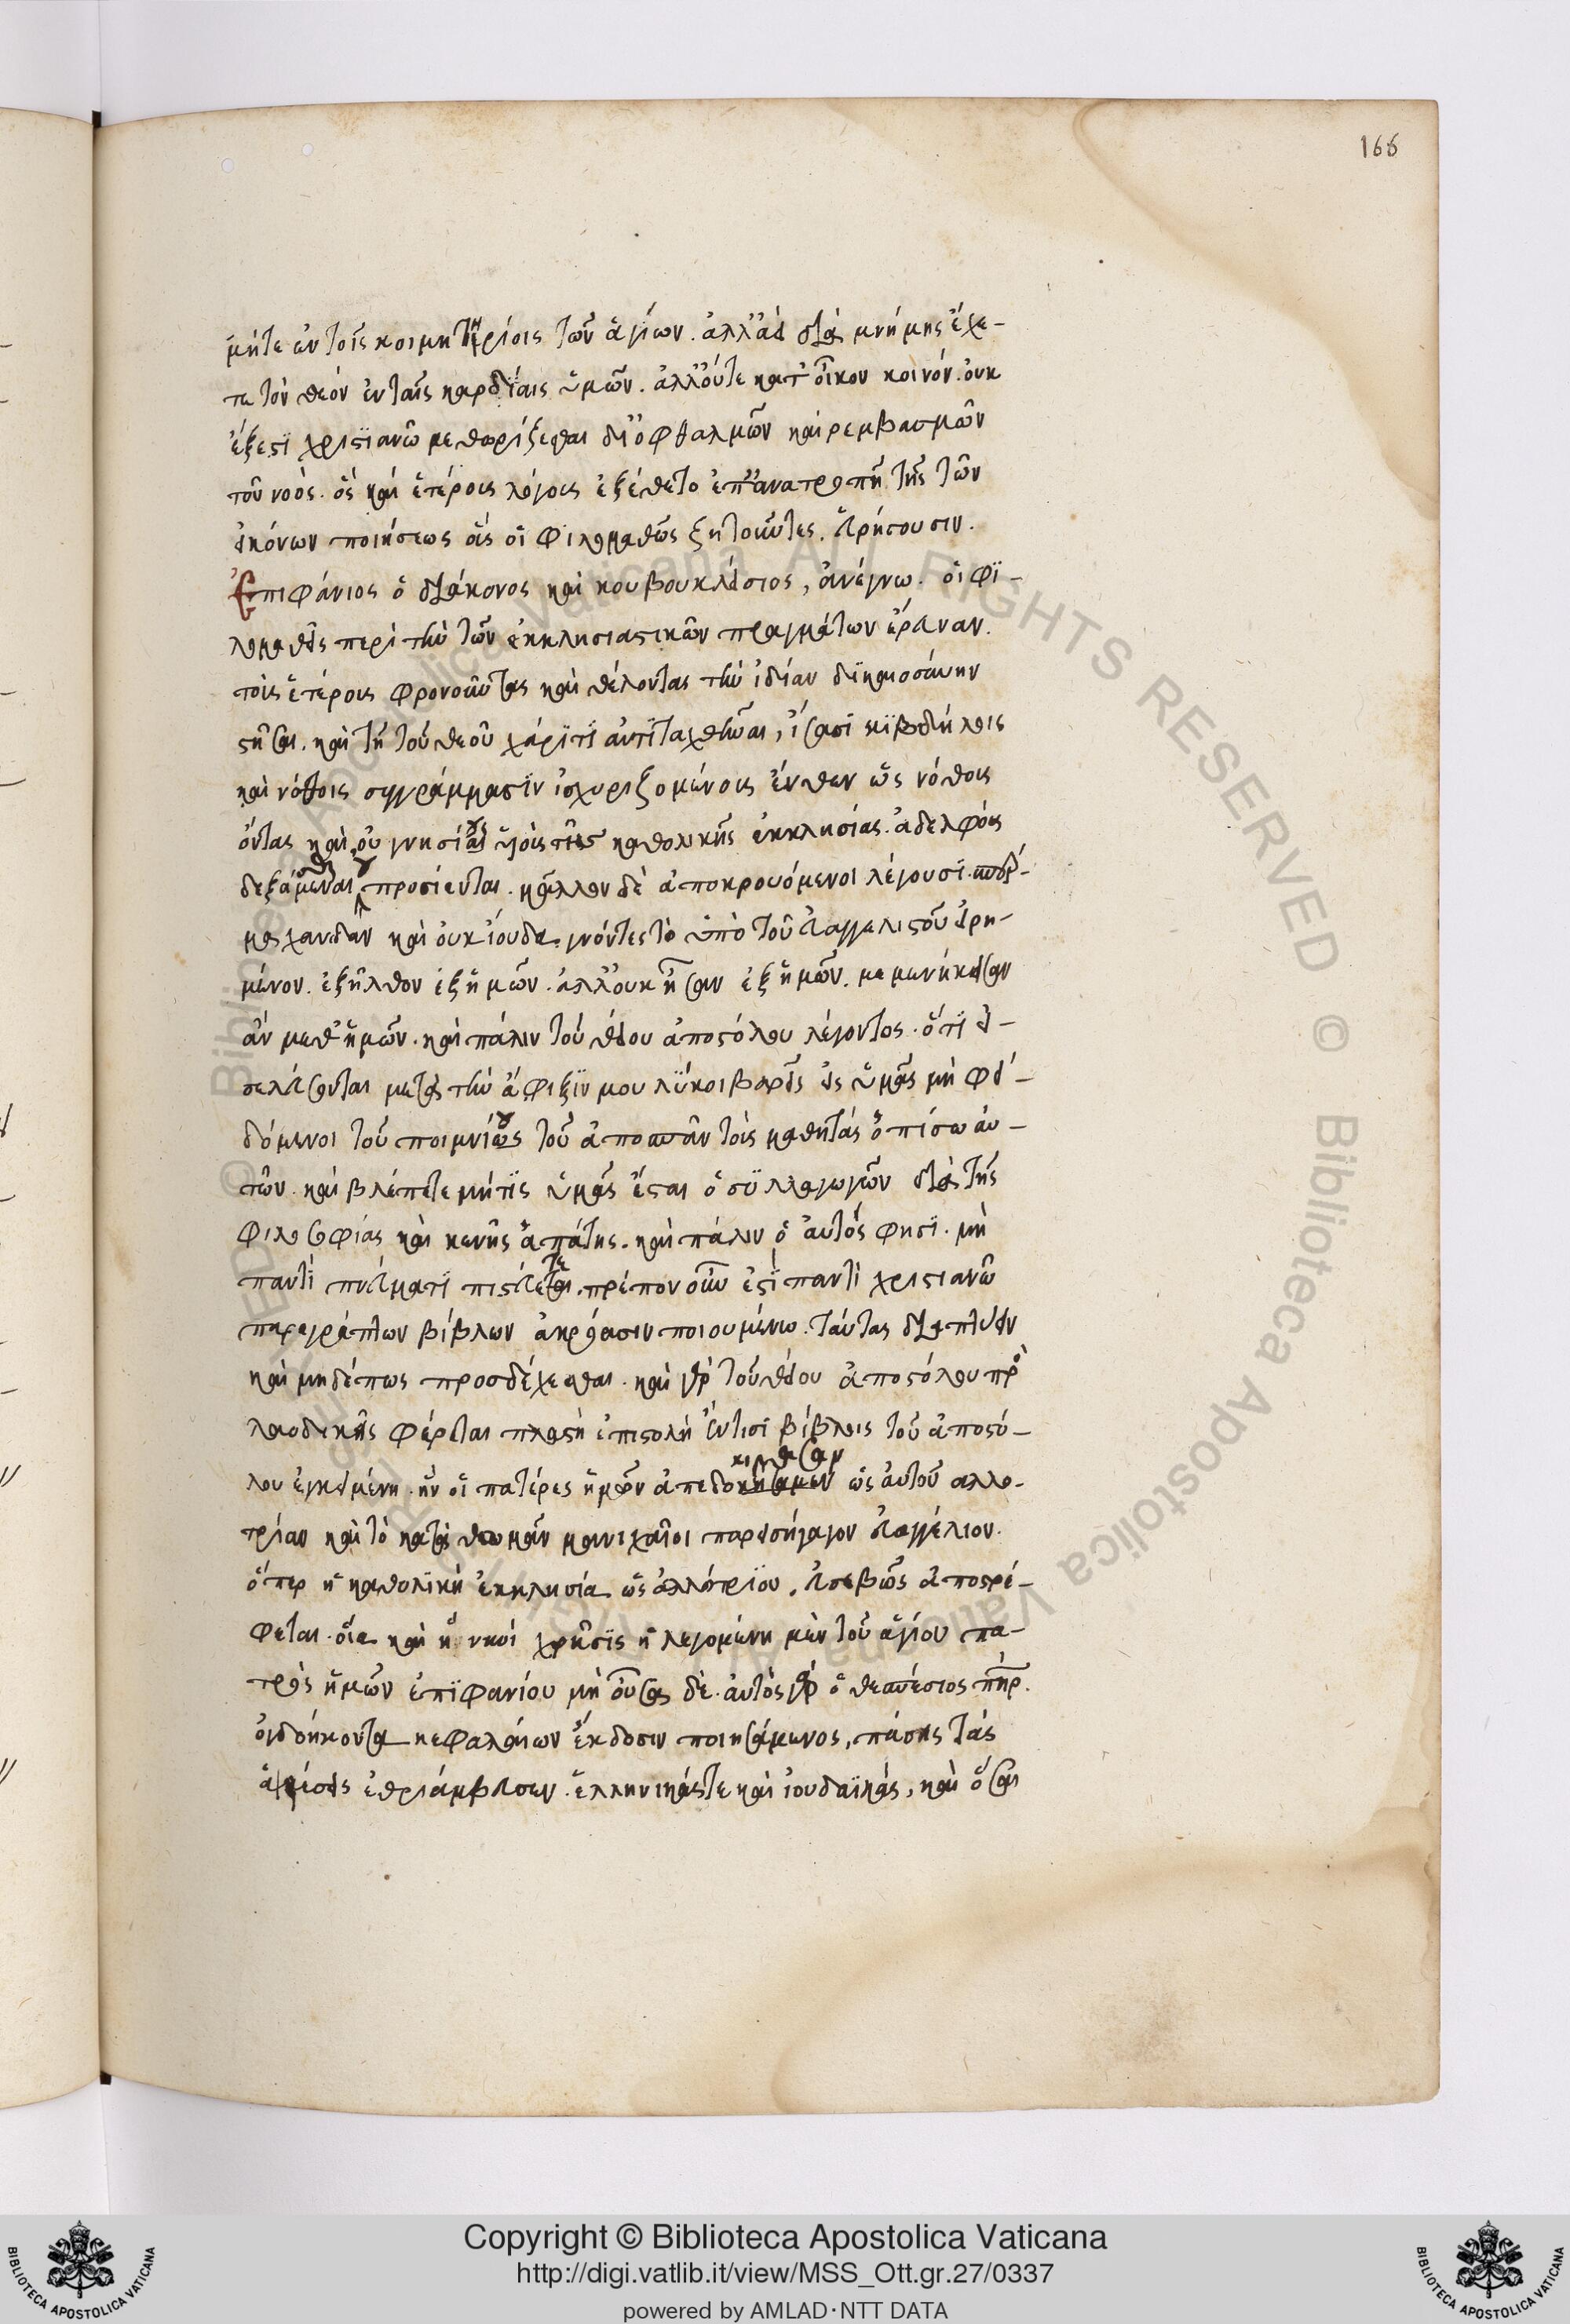 166
μήτε ἐν τοῖς κοιμητηρίοις τῶν ἁγίων. ἀλλ' ἀεὶ διὰ μνήμης ἔχε-
τε τὸν θεόν ἐν ταῖς καρδίαις ὑμῶν. ἀλλ' οὔτε κατ' οἶκον κοινόν. οὐκ
ἔξεστι χριστιανῶ μεθωρίζεσθαι δι' ὀφθαλμῶν καὶ ρεμβασμῶν
τοῦ νοός. ὅς καὶ ἑτέρους λόγους ἐξέθετο ἐπ' ἀνατροπῆ τῆς τῶν
εἰκόνων ποιήσεως ἅς οἱ φιλομαθῶς ζητοῦντες. εὑρήσουσιν.
Ἐπιφάνιος ὁ διάκονος καὶ κουβουκλείσιος, ἀνέγνω. οἱ φι-
λομαθεῖς περὶ τὴν τῶν ἐκκλησιαστικῶν πραγμάτων ἔρευναν.
τοὺς ἑτέρους φρονοῦντας καὶ θέλοντας τὴν ἰδίαν δικαιοσύνην
στῆσαι. καὶ τῆ τοῦ θεοῦ χάριτι ἀντιταχθῆναι, ἴσασι κιβδήλοις
καὶ νόθοις συγγράμμασιν ἰσχυριζομένους ἔνθεν ὡς νόθους
ὄντας καὶ οὐ γνησίους υἱοὺς τῆς καθολικῆς ἐκκλησίας. ἀδελφούς
δέξασθαι οὐ προσίενται. μᾶλλον δὲ ἀποκρουόμενοι λέγουσι. οὐδὲ-
μος χανδὰν καὶ οὐκ ἰούδα. γνόντες τὸ ὑπὸ τοῦ εὐαγγελιστοῦ εἰρη-
μένον. ἐξῆλθον ἐξ ἡμῶν. ἀλλ' οὐκ ἦσαν ἐξ ἡμῶν. μεμενήκεισαν
ἂν μεθ' ἡμῶν. καὶ πάλιν τοῦ θείου ἀποστόλου λέγοντος. ὅτι εἰ-
σελεύσονται μετὰ τὴν ἄφιξιν μου λύκοι βαρεῖς εἰς ὑμᾶς μὴ φει-
δόμενοι τοῦ ποιμνίου τοῦ ἀποσπᾶν τοὺς μαθητὰς ὀπίσω αὐ-
τῶν. καὶ βλέπετε μήτις ὑμᾶς ἔσται ὁ συλλαγωγῶν διὰ τῆς
φιλοσοφίας καὶ κενῆς ἀπάτης. καὶ πάλιν ὁ αὐτός φησι. μὴ
παντὶ πνεύματι πιστεύετε. πρέπον οὖν ἐστὶ παντὶ χριστιανῶ
παρεγράπτων βίβλων ἀκρόασιν ποιουμένω. ταύτας διαπτύειν
καὶ μηδέπως προσδέχεσθαι. καὶ γὰρ τοῦ θείου ἀποστόλου πρὸ
λαοδικεῖς φέρεται πλαστὴ ἐπιστολὴ ἔν τισι βίβλοις τοῦ ἀποστό-
λου ἐγκειμένη. ἣν οἱ πατέρες ἡμῶν ἀπεδοκίμασαν ὡς αὐτοῦ αλλο-
τρίαν καὶ τὸ κατὰ θωμᾶν μανιχαῖοι παρεισήγαγον εὐαγγέλιον.
ὅπερ ἡ καθολικὴ ἐκκλησία ὡς ἀλλότριον. εὐσεβῶς ἀποστρέ-
φεται. οἷα καὶ ἡ νυνὶ χρῆσις ἡ λεγομένη μὲν τοῦ ἁγίου πα-
τρὸς ἡμῶν ἐπιφανίου μὴ οὖσα δὲ. αὐτὸς γὰρ ὁ θεσπέσιος πῆρ.
ὀγδοήκοντα κεφαλαίων ἔκδοσιν ποιησάμενος, πάσης τὰς
αἱρέσεις ἐθριάμβευσεν. ἑλληνικάς τε καὶ ἰουδαϊκάς, καὶ ὅσαι
Copyright © Biblioteca Apostolica Vaticana
http://digi.vatlib.it/view/MSS_Ott.gr.27/0337
powered by AMLAD·NTT DATA